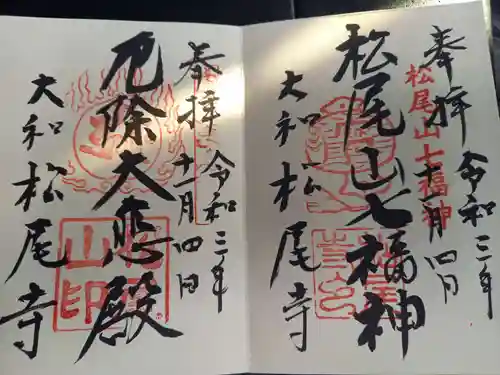 奉拝
令和三年
十一月四日
松尾山七福神
松尾山七福神
大和松尾寺
奉拝
令和三年
十一月四日
厄除大悲殿
大和松尾寺